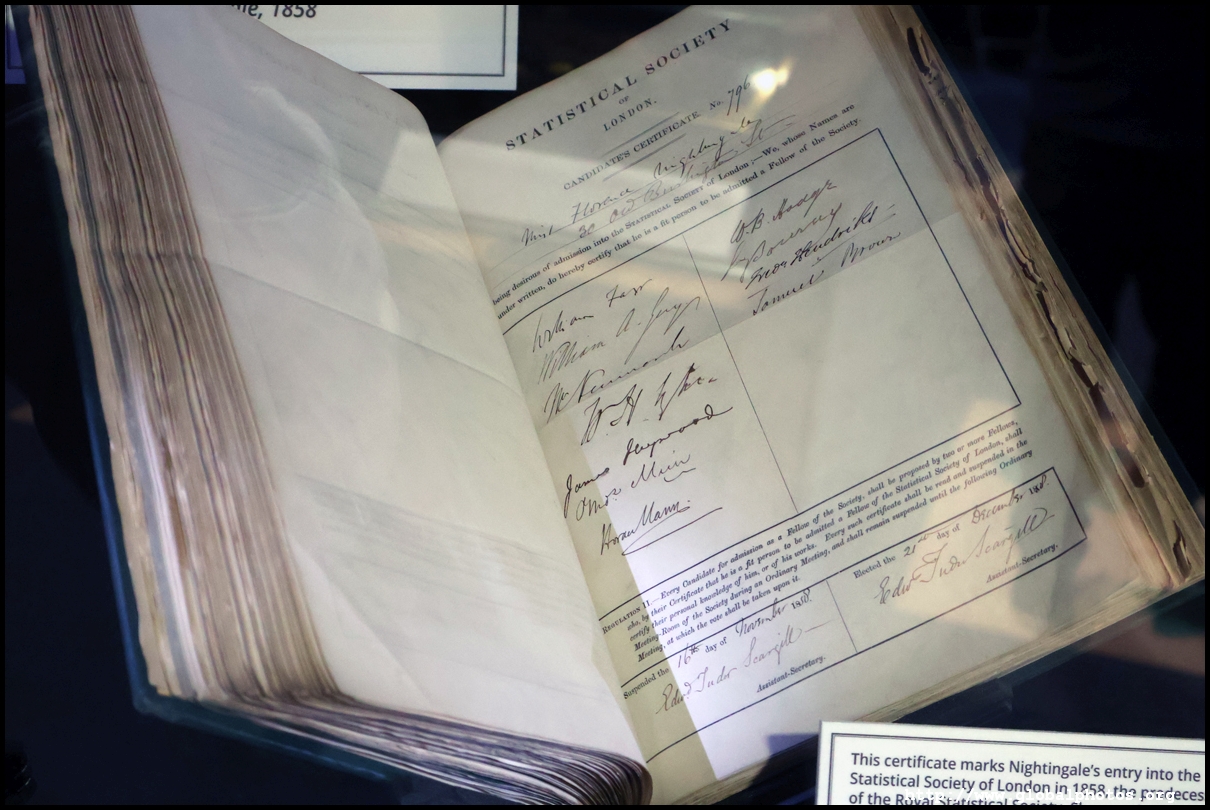 le, 1858
STATISTICAL SOCIETY
OF
LONDON.
CANDIDATE'S CERTIFICATE. No. 796
Miss Florence Nightingale
30 Old Burlington St
being desirous of admission into the STATISTICAL SOCIETY of London;—We, whose Names are
under written, do hereby certify that he is a fit person to be admitted a Fellow of the Society.
William Farr
William A. Guy
W. H.
James Heywood
Horace Mann
W. B. Hodge
Hendriks
Samuel Brown
REGULATION II.—Every Candidate for admission as a Fellow of the Society, shall be proposed by two or more Fellows,
who, by their Certificate that he is a fit person to be admitted a Fellow of the Statistical Society of London, shall
certify their personal knowledge of him, or of his works. Every such certificate shall be read and suspended in the
Meeting Room of the Society during an Ordinary Meeting, and shall remain suspended until the following Ordinary
Meeting, at which the vote shall be taken upon it.
Suspended the 16th day of November 1858.
Edwd Tudor Scargill
Assistant-Secretary.
Elected the 21st day of December 1858.
Edwd Tudor Scargill
Assistant-Secretary.
This certificate marks Nightingale's entry into the
Statistical Society of London in 1858, the predeces
of the Royal Statistical